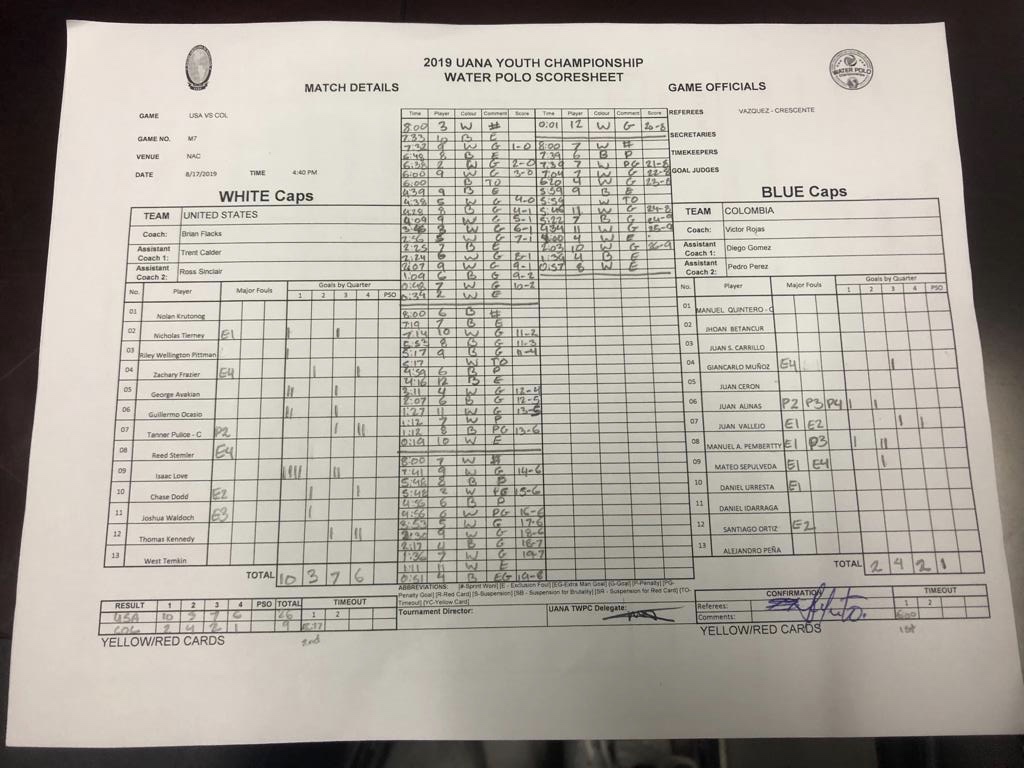 2019 UANA YOUTH CHAMPIONSHIP
WATER POLO SCORESHEET
MATCH DETAILS
GAME OFFICIALS
GAME USA VS COL
GAME NO. M7
VENUE NAC
DATE 8/17/2019 TIME 4:40 PM
REFEREES VAZQUEZ - CRESCENTE
SECRETARIES
TIMEKEEPERS
GOAL JUDGES
WHITE Caps
TEAM UNITED STATES
Coach: Brian Flacks
Assistant Coach 1: Trent Calder
Assistant Coach 2: Ross Sinclair
No. Player Major Fouls Goals by Quarter
1 2 3 4 PSO
01 Nolan Krutonog
02 Nicholas Tierney E1
03 Riley Wellington Pittman
04 Zachary Frazier E4
05 George Avakian
06 Guillermo Ocasio
07 Tanner Pulice - C P2
08 Reed Stemler E4
09 Isaac Love
10 Chase Dodd E2
11 Joshua Waldoch E3
12 Thomas Kennedy
13 West Temkin
TOTAL 10 3 7 6
Time Player Colour Comment Score
8:00 3 W #
7:33 10 B E
7:32 9 W G 1-0
6:48 8 B E
6:38 2 W G 2-0
6:00 9 W G 3-0
6:00 B TO
4:39 9 B E
4:38 5 W G 4-0
4:28 8 B G 4-1
4:09 9 W G 5-1
W G 6-1
2:56 5 W G 7-1
2:25 7 B E
2:24 6 W G 8-1
2:07 9 W G 9-1
1:09 6 B G 9-2
0:48 7 W G 10-2
0:34 2 W E
8:00 6 B #
7:19 7 B E
7:14 10 W G 11-2
5:53 8 B G 11-3
5:17 9 B G 11-4
5:17 W TO
4:59 6 B P
4:16 12 B E
3:11 4 W G 12-4
2:07 6 B G 12-5
1:27 11 W G 13-5
1:12 7 W P
1:12 8 B PG 13-6
0:19 10 W E
8:00 7 W #
7:41 9 W G 14-6
5:48 8 B P
5:48 2 W PG 15-6
4:56 6 B P
4:56 6 W PG 16-6
5 W G 17-6
2:30 9 W G 18-6
2:17 4 B G 18-7
1:36 7 W G 19-7
1:11 11 W E
0:51 4 B EG 19-8
Time Player Colour Comment Score
0:01 12 W G 20-8
8:00 7 W #
7:39 6 B P
7:39 7 W PG 21-8
7:04 7 W G 22-8
6:20 4 W G 23-8
5:59 9 B E
5:59 W TO
5:46 11 W G 24-8
5:22 7 B G 24-9
11 W G 25-9
4 W E
2:03 10 W G 26-9
1:39 4 B E
0:57 8 W E
BLUE Caps
TEAM COLOMBIA
Coach: Victor Rojas
Assistant Coach 1: Diego Gomez
Assistant Coach 2: Pedro Perez
No. Player Major Fouls Goals by Quarter
1 2 3 4 PSO
01 MANUEL QUINTERO - C
02 JHOAN BETANCUR
03 JUAN S. CARRILLO
04 GIANCARLO MUÑOZ E4
05 JUAN CERON
06 JUAN ALINAS P2 P3 P4
07 JUAN VALLEJO E1 E2
08 MANUEL A. PEMBERTTY E1 P3
09 MATEO SEPULVEDA E1 E4
10 DANIEL URRESTA E1
11 DANIEL IDARRAGA
12 SANTIAGO ORTIZ E2
13 ALEJANDRO PEÑA
TOTAL 2 4 2 1
ABBREVIATIONS: [#-Sprint Won] [E - Exclusion Foul] [EG-Extra Man Goal] [G-Goal] [P-Penalty] [PG-Penalty Goal] [R-Red Card] [S-Suspension] [SB - Suspension for Brutality] [SR - Suspension for Red Card] [TO-Timeout] [YC-Yellow Card]
RESULT 1 2 3 4 PSO TOTAL TIMEOUT
1 2
USA 10 3 7 6 26
COL 2 4 2 1 9 5:17
2nd
YELLOW/RED CARDS
Tournament Director:
UANA TWPC Delegate:
CONFIRMATION
Referees:
Comments:
TIMEOUT
1 2
6:00
1st
YELLOW/RED CARDS
WATER POLO